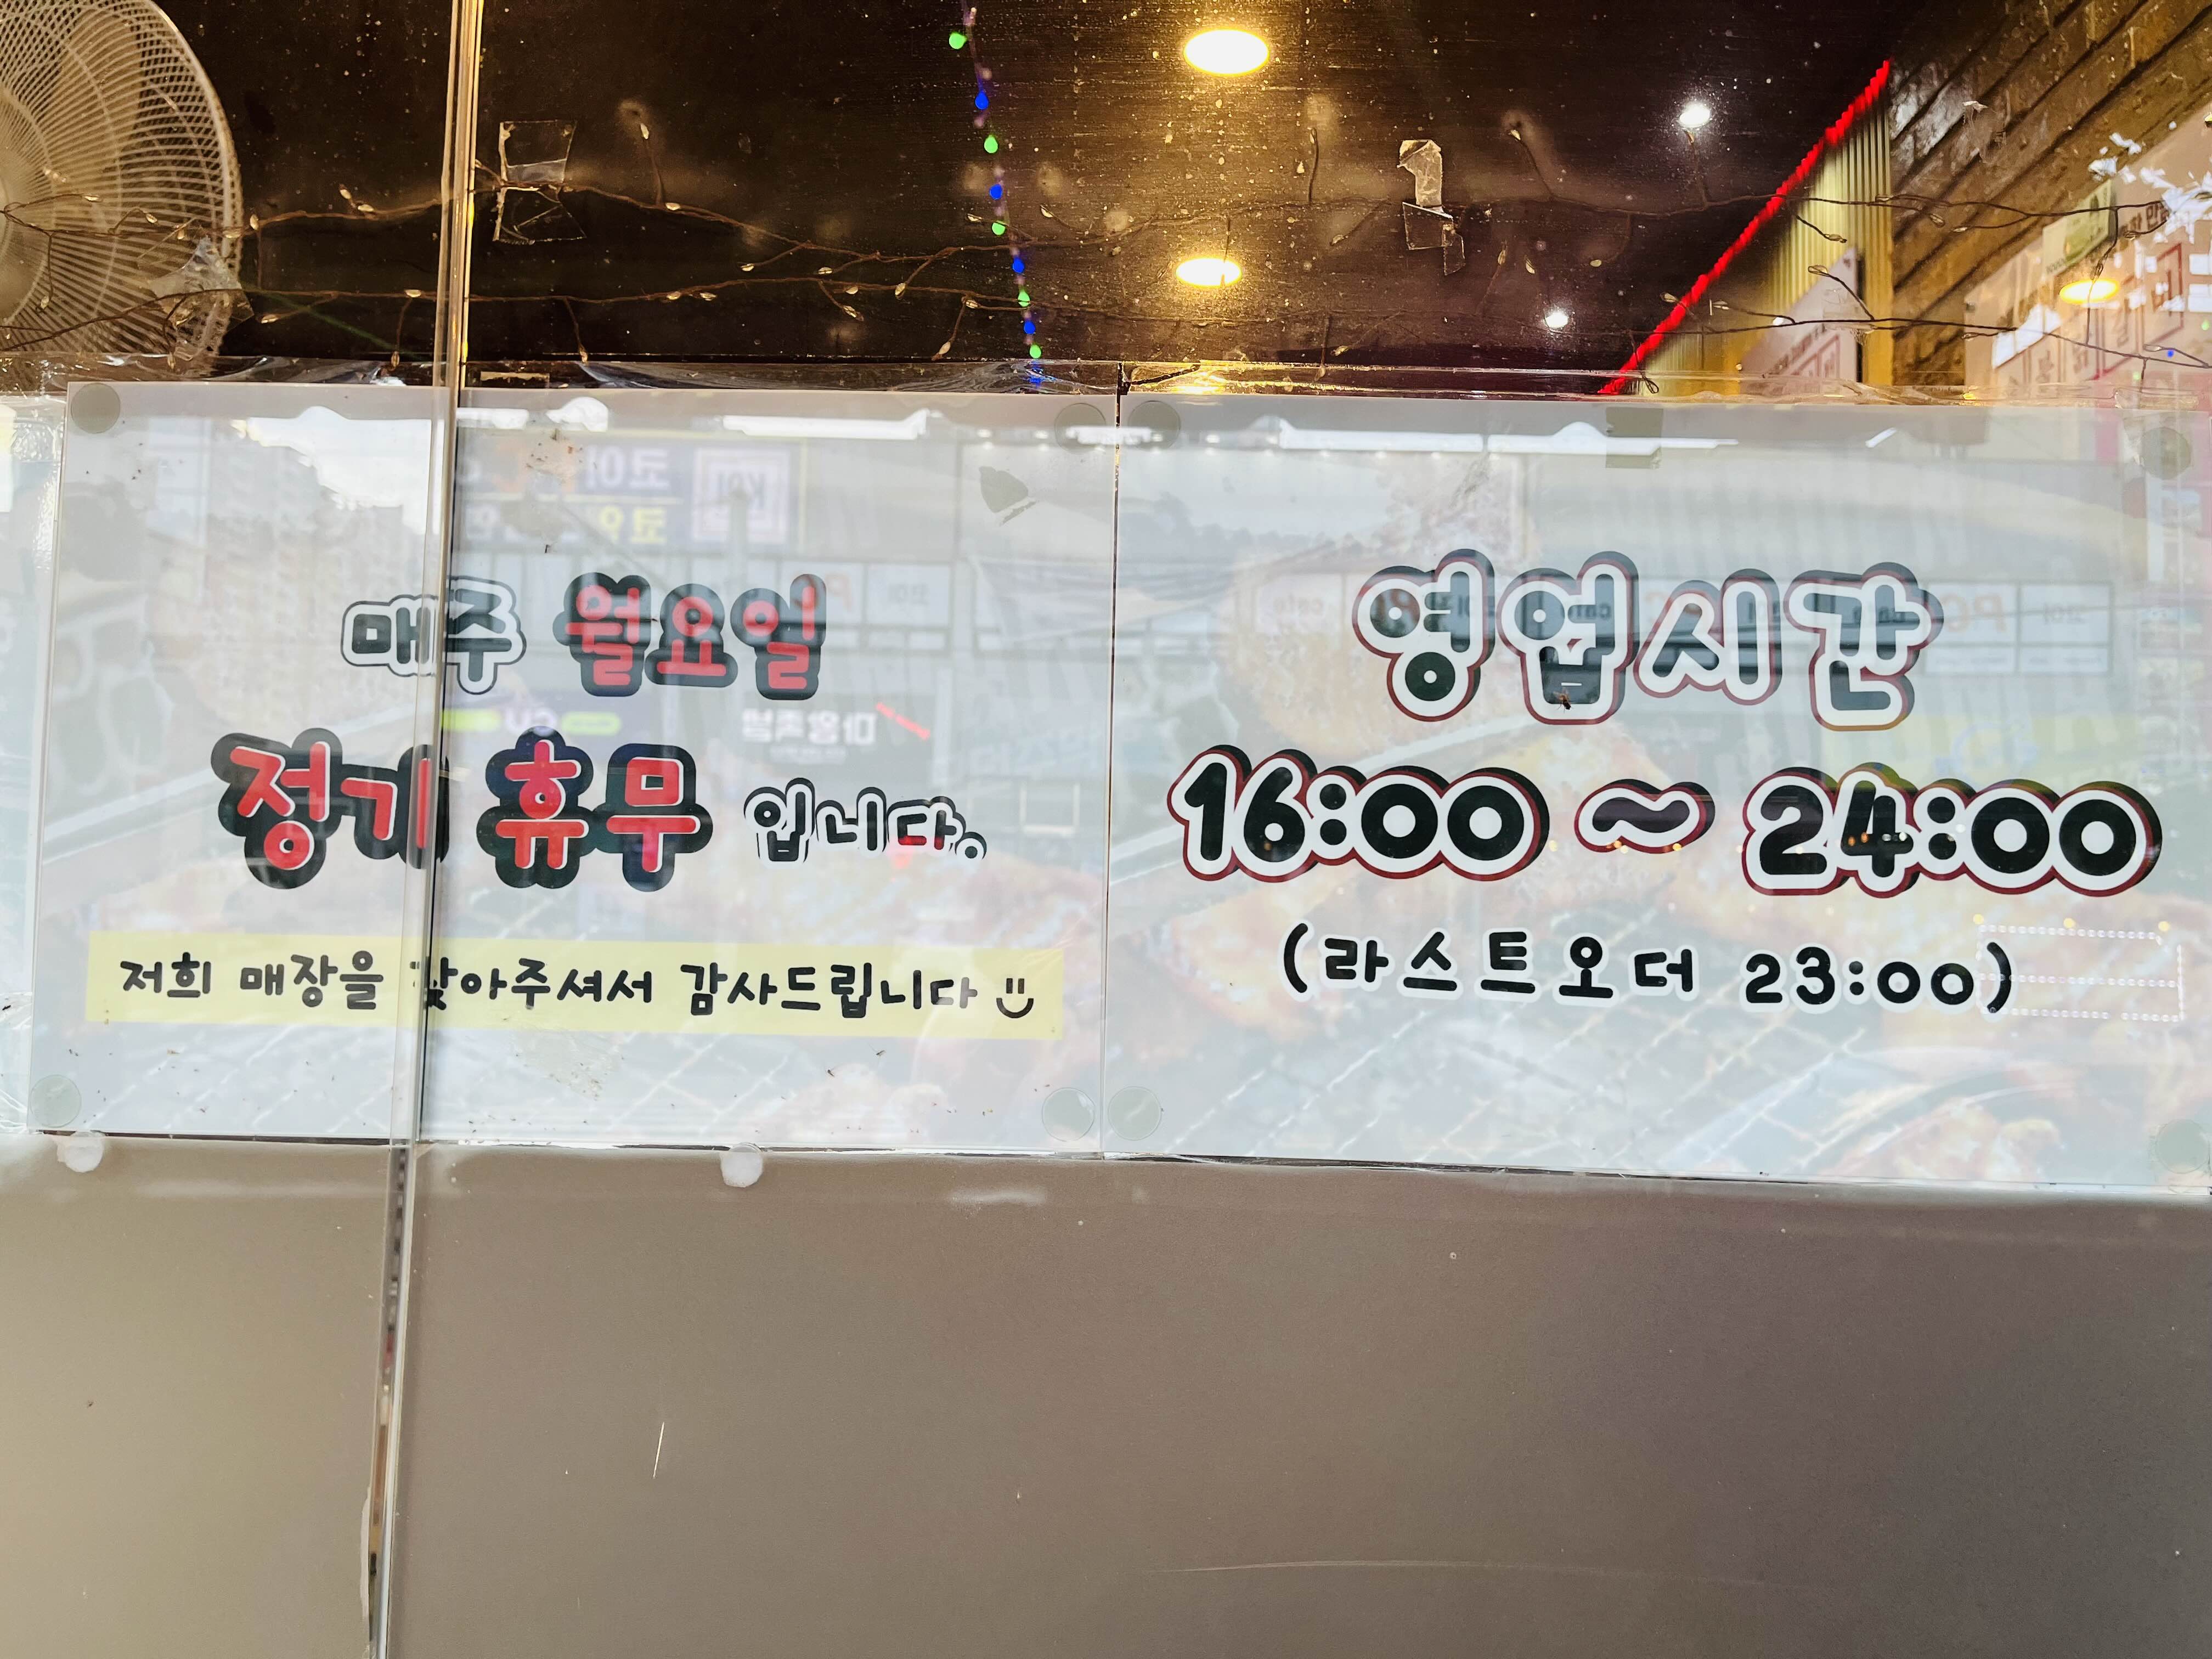 매주 월요일
정기 휴무 입니다.
저희 매장을 찾아주셔서 감사드립니다
영업시간
16:00 ~ 24:00
(라스트오더 23:00)